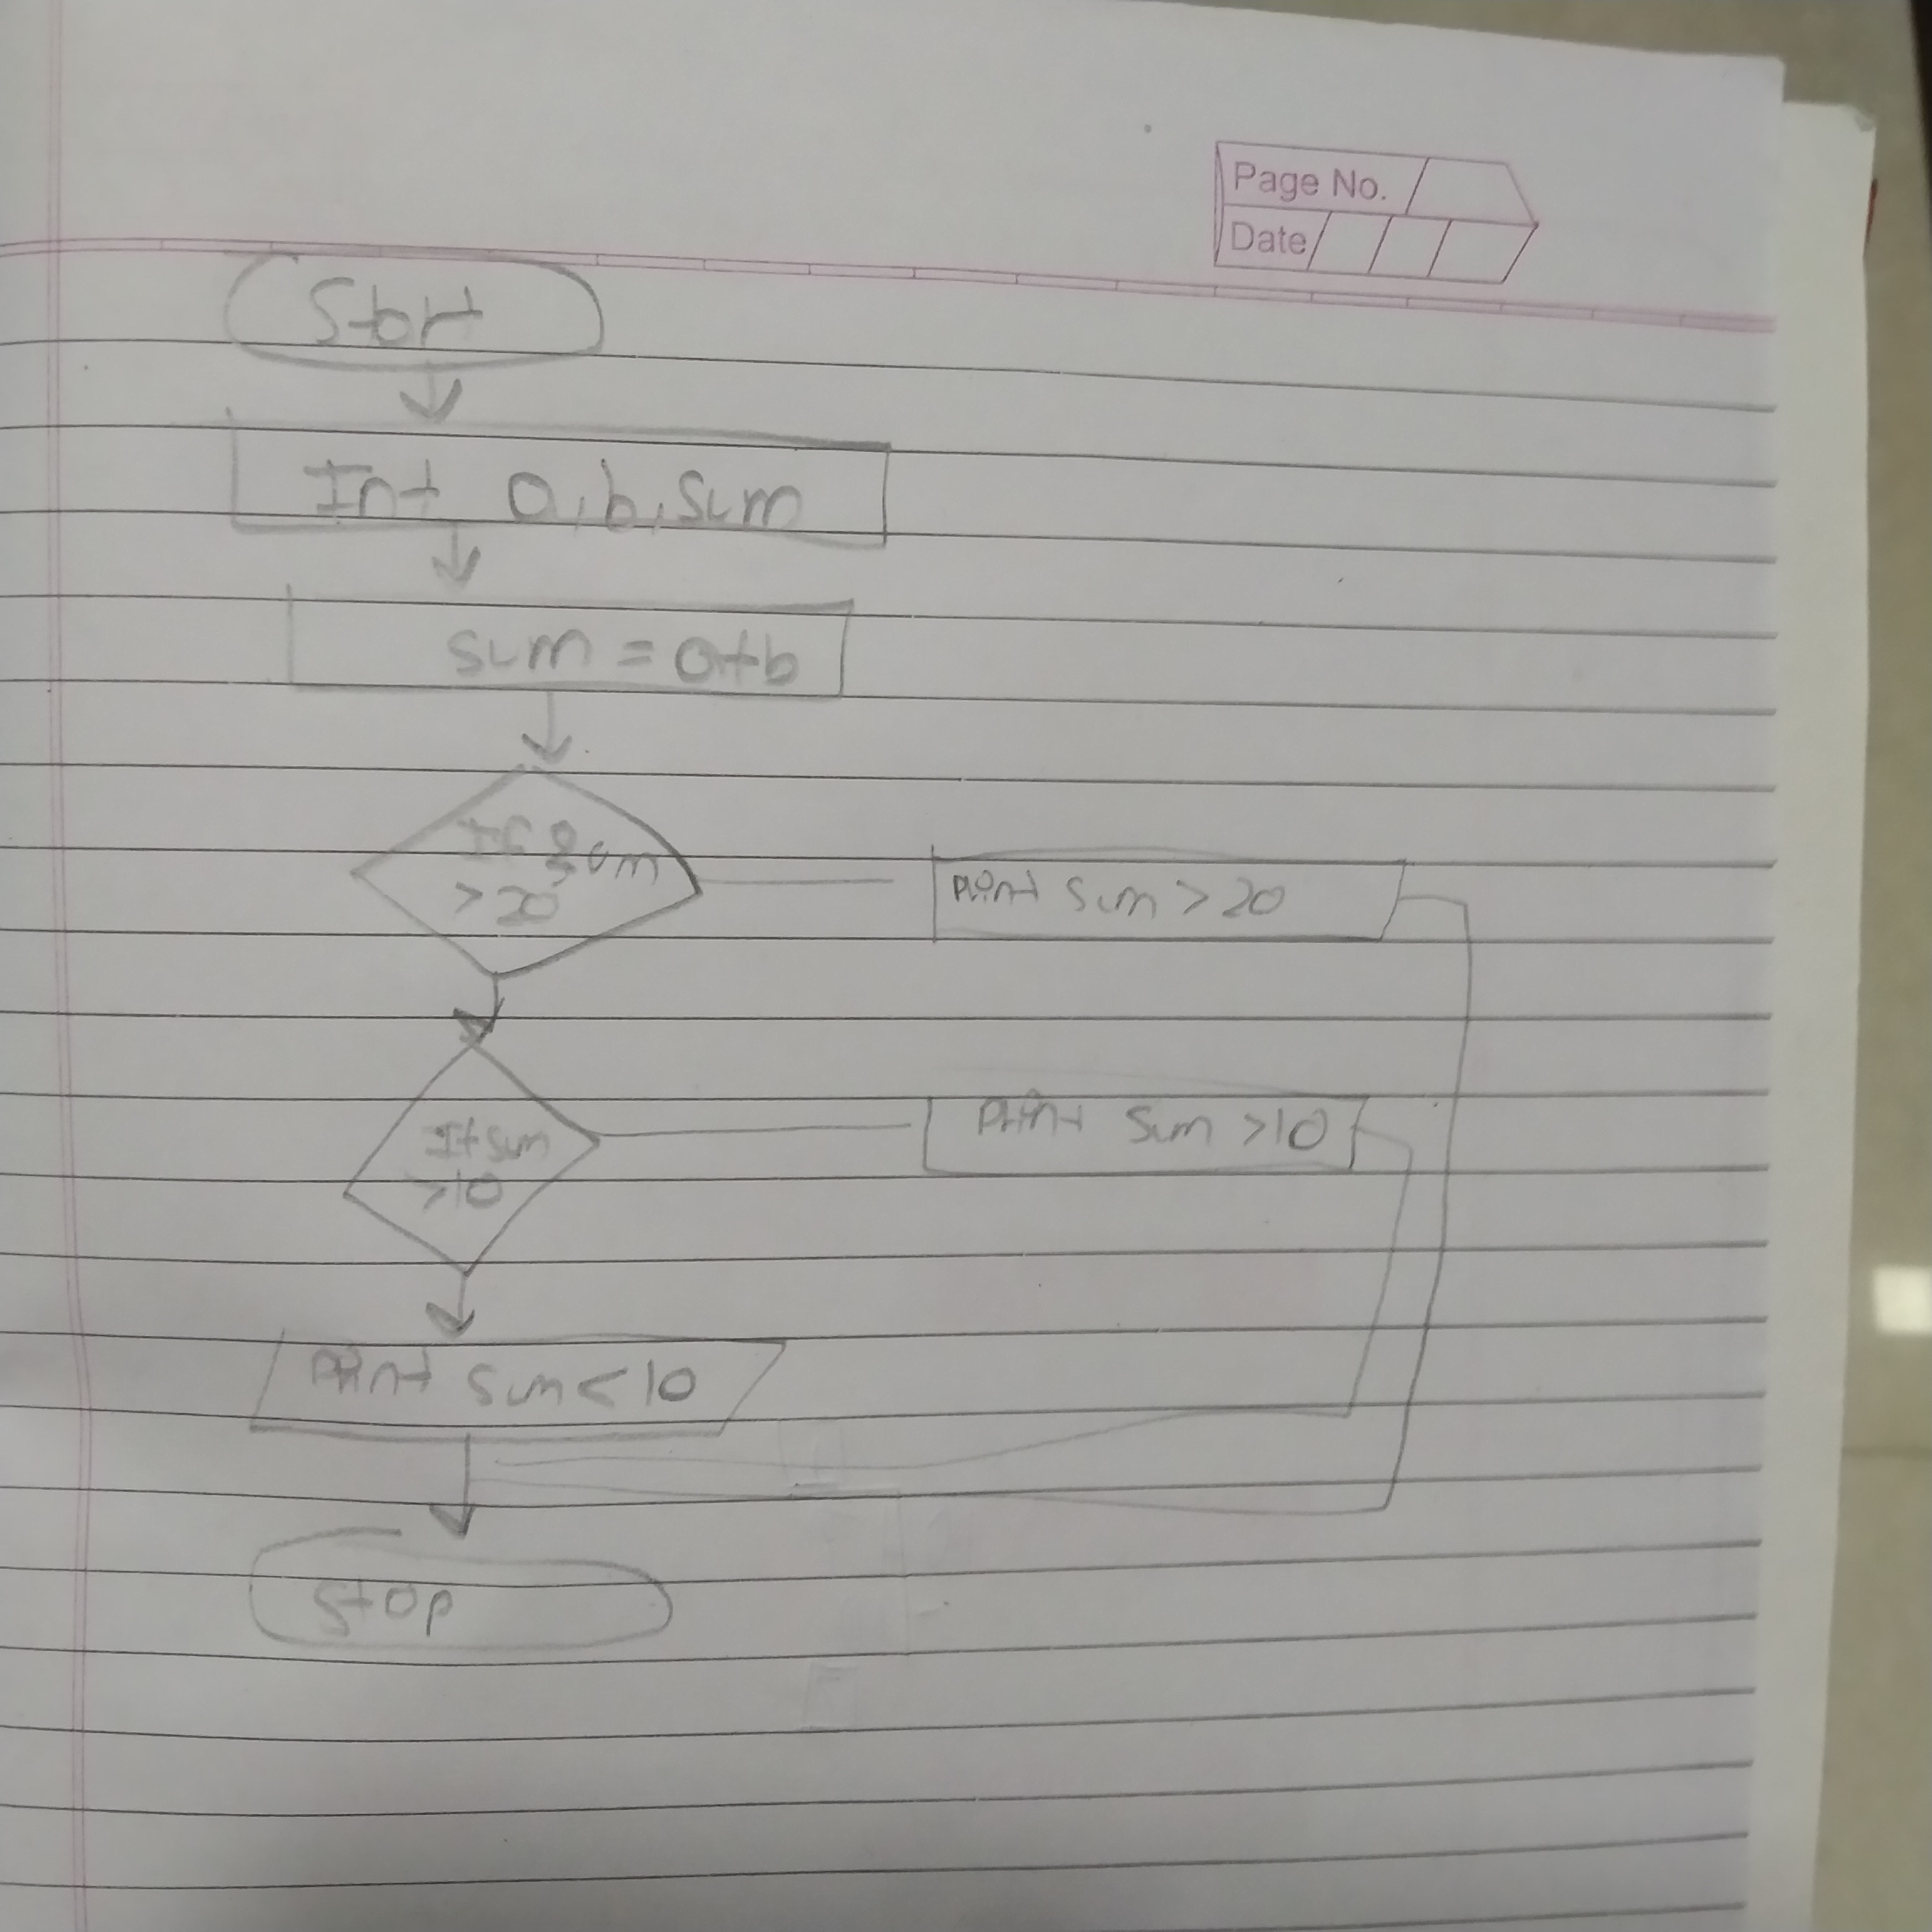 Page No.
Date
Start
Int a, b, sum
sum = a+b
If sum
> 20
Print sum > 20
If sum
>10
Print sum >10
Print sum < 10
Stop